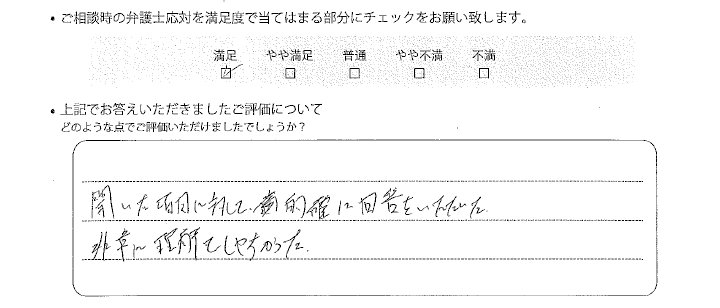 • ご相談時の弁護士応対を満足度で当てはまる部分にチェックをお願い致します。
満足 やや満足 普通 やや不満 不満
☑ □ □ □ □
• 上記でお答えいただきましたご評価について
どのような点でご評価いただけましたでしょうか?
聞いた項目に対して、的確に回答をいただいた。
非常に理解もしやすかった。